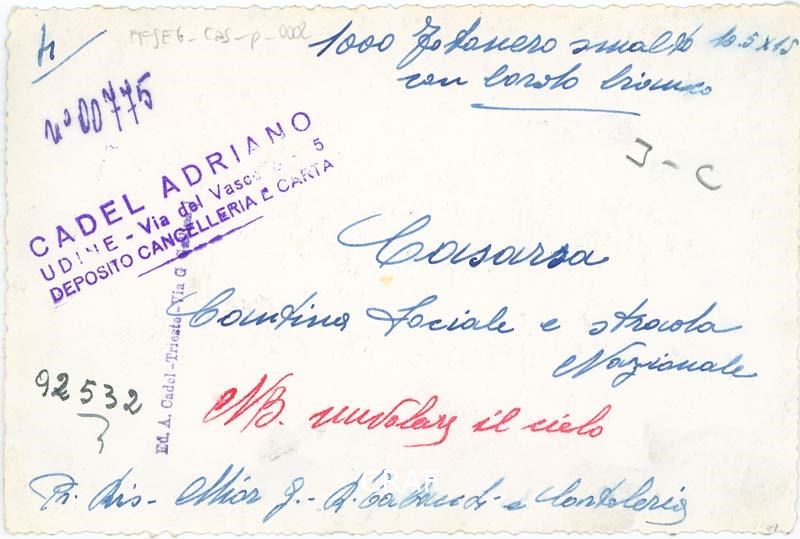 FFSEG-CAS-p-0002
1000 Fotonero smalto 10.5x15
con bordo bianco
n° 00775
J-C
CADEL ADRIANO
UDINE - Via del Vasc 5
DEPOSITO CANCELLERIA E CARTA
Casarsa
Cantina Sociale e strada
Nazionale
Ed. A. Cadel - Trieste - Via G.
92532
NB. nuvolare il cielo
CRAF
Ri. Dis-
e Cartoleria